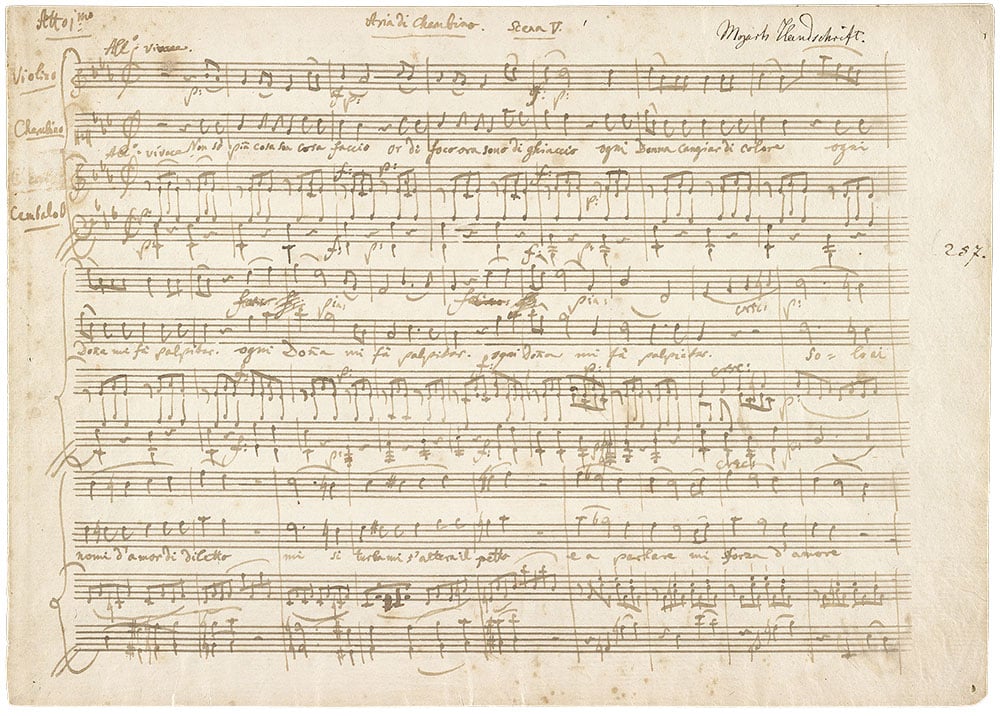 Atto 1mo Aria di Cherubino. Scena V. Mozarts Handschrift.
All.o vivace.
Violino
p: f: p: f: p:
Cherubino
Non sò più cosa son cosa faccio or di foco ora sono di ghiaccio ogni Donna cangiar di colore ogni
All.o vivace
f: p: f: p:
Cembalo
p: p: f: p: f: p:
257.
pia: pia: cresc: p:
Donna mi fà palpitar. ogni Donna mi fà palpitar. ogni donna mi fà palpitar. so = lo ai
f: f: p: cresc: p:
f: p: f: p:
cresc:
nomi d'amor di diletto mi si turba mi s'altera il petto e a parlare mi sforza d'amore